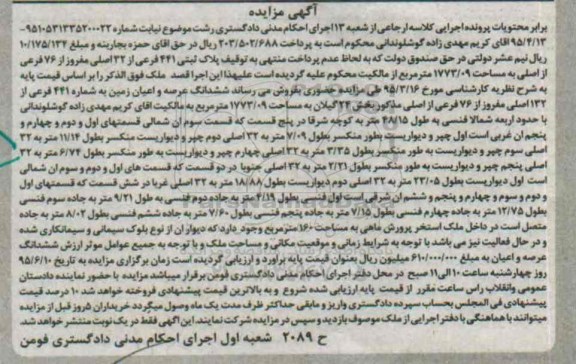 آگهی مزایده
برابر محتویات پرونده اجرایی کلاسه ارجاعی از شعبه ۱۳ اجرای احکام مدنی دادگستری رشت موضوع نیابت شماره ۹۵۱۰۵۳۱۳۳۵۲۰۰۰۲۲-
۹۵/۴/۱۳ آقای کریم مهدی زاده گوشلوندانی محکوم است به پرداخت ۲۰۳/۵۰۲/۶۸۸ ریال در حق آقای حمزه بجاربنه و مبلغ ۱۰/۱۷۵/۱۳۴
ریال نیم عشر دولتی در حق صندوق دولت که به لحاظ عدم پرداخت منتهی به توقیف پلاک ثبتی ۴۴۱ فرعی از ۳۲ اصلی مفروز از ۷۶ فرعی
از اصلی به مساحت ۱۷۷۳/۰۹ مترمربع از مالکیت محکوم علیه گردیده است علیهذا این اجرا قصد ملک فوق الذکر را بر اساس قیمت پایه
به شرح نظریه کارشناسی مورخ ۹۵/۳/۱۶ طی مزایده حضوری بفروش می رساند ششدانگ عرصه و اعیان زمین به شماره ۴۴۱ فرعی از
۱۳۲ اصلی مفروز از ۷۶ فرعی از اصلی مذکور بخش ۲۴ گیلان به مساحت ۱۷۷۳/۰۹ مترمربع به مالکیت آقای کریم مهدی زاده گوشلوندانی
با حدود اربعه شمالا فنسی به طول ۴۸/۱۵ متر به کوچه شرقا در پنج قسمت که قسمت سوم آن شمالی قسمتهای اول و دوم و چهارم و
پنجم آن غربی است اول چپر و دیواریست بطور منکسر بطول ۷/۰۹ متر به ۳۲ اصلی دوم چپر و دیواریست منکسر بطول ۱۱/۱۴ متر به ۳۲
اصلی سوم چپر و دیواریست به طور منکسر بطول ۳/۳۵ متر به ۳۲ اصلی چهارم چپر و دیواریست به طور منکسر بطول ۶/۷۴ متر به ۳۲
اصلی پنجم چپر و دیواریست به طور منکسر بطول ۲/۲۱ متر به ۳۲ اصلی جنوبا در دو قسمت که قسمت های اول و دوم و سوم آن شمالی
است اول دیواریست بطول ۲۳/۰۵ متر به ۳۲ اصلی دوم دیواریست بطول ۱۸/۸۸ متر به ۳۲ اصلی غربا در شش قسمت که قسمتهای اول
و دوم و سوم و چهارم و پنجم و ششم آن شرقی است اول فنسی به طول ۲/۱۹ متر به جاده دوم فنسی به طول ۹/۲۱ متر به جاده سوم فنسی
بطول ۱۲/۷۵ متر به جاده چهارم فنسی بطول ۷/۱۵ متر به جاده پنجم فنسی بطول ۷/۶۰ متر به جاده ششم فنسی بطول ۸/۰۲ متر به جاده
متصل است در داخل ملک استخر پرورش ماهی به مساحت ۱۶۰ مترمربع وجود دارد که دیوار آن از نوع بلوک سیمانی و سیمانکاری شده
و در حال فعالیت نیز می باشد با توجه به شرایط زمانی و موقعیت مکانی و مساحت ملک و با توجه به جمیع عوامل موثر ارزش ششدانگ
عرصه و اعیان به مبلغ ۶۱۰/۰۰۰/۰۰۰ میلیون ریال بعنوان قیمت پایه برآورد و ارزیابی گردیده است زمان برگزاری مزایده به تاریخ ۹۵/۶/۱۰
روز چهارشنبه ساعت ۱۰ الی ۱۱ صبح در محل دفتر اجرای احکام مدنی دادگستری فومن برقرار میباشد مزایده با حضور نماینده دادستان
عمومی وانقلاب راس ساعت مقرر از قیمت پایه ارزیابی شده شروع و به بالاترین قیمت پیشنهادی فروخته خواهد شد ۱۰ درصد قیمت
پیشنهادی فی المجلس بحساب سپرده دادگستری واریز و مابقی حداکثر ظرف مدت یک ماه وصول میگردد خریداران ۵روز قبل از مزایده
میتوانند با هماهنگی با دفتر اجرایی از ملک موصوف بازدید و سپس در مزایده شرکت نمایند. این آگهی فقط در یک نوبت منتشر خواهد شد.
ح ۲۰۸۹ شعبه اول اجرای احکام مدنی دادگستری فومن